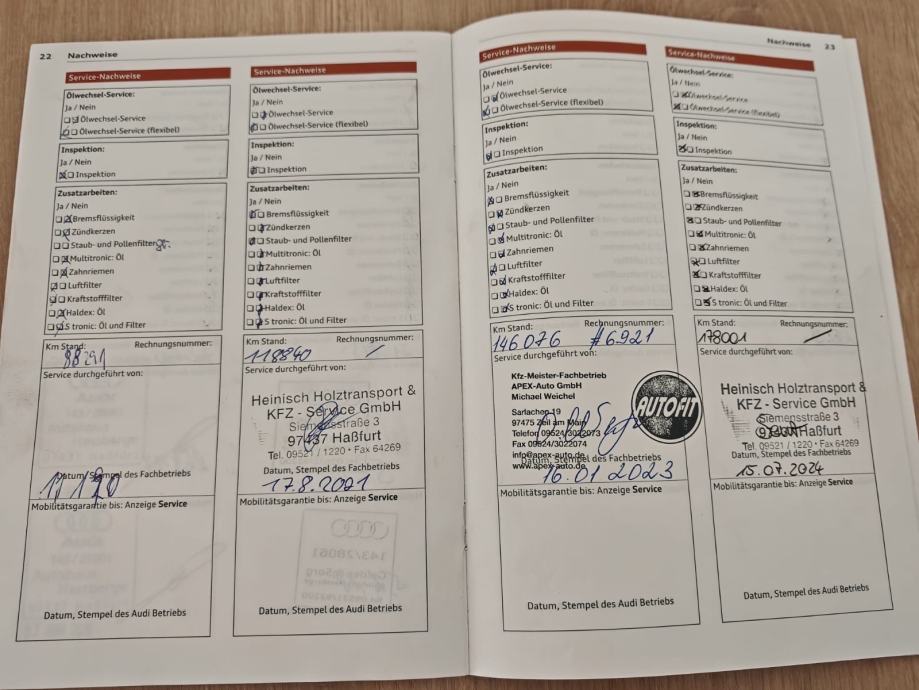 22 Nachweise
Service-Nachweise
Ölwechsel-Service:
Ja / Nein
Ölwechsel-Service
Ölwechsel-Service (flexibel)
Inspektion:
Ja / Nein
Inspektion
Zusatzarbeiten:
Ja / Nein
Bremsflüssigkeit
Zündkerzen
Staub- und Pollenfilter
Multitronic: Öl
Zahnriemen
Luftfilter
Kraftstofffilter
Haldex: Öl
S tronic: Öl und Filter
Km Stand: Rechnungsnummer:
88291
Service durchgeführt von:
Datum, Stempel des Fachbetriebs
Mobilitätsgarantie bis: Anzeige Service
Datum, Stempel des Audi Betriebs
Service-Nachweise
Ölwechsel-Service:
Ja / Nein
Ölwechsel-Service
Ölwechsel-Service (flexibel)
Inspektion:
Ja / Nein
Inspektion
Zusatzarbeiten:
Ja / Nein
Bremsflüssigkeit
Zündkerzen
Staub- und Pollenfilter
Multitronic: Öl
Zahnriemen
Luftfilter
Kraftstofffilter
Haldex: Öl
S tronic: Öl und Filter
Km Stand: Rechnungsnummer:
118840 /
Service durchgeführt von:
Heinisch Holztransport &
KFZ - Service GmbH
Siemensstraße 3
97437 Haßfurt
Tel. 09521 / 1220 • Fax 64269
Datum, Stempel des Fachbetriebs
17.8.2021
Mobilitätsgarantie bis: Anzeige Service
Datum, Stempel des Audi Betriebs
Nachweise 23
Service-Nachweise
Ölwechsel-Service:
Ja / Nein
Ölwechsel-Service
Ölwechsel-Service (flexibel)
Inspektion:
Ja / Nein
Inspektion
Zusatzarbeiten:
Ja / Nein
Bremsflüssigkeit
Zündkerzen
Staub- und Pollenfilter
Multitronic: Öl
Zahnriemen
Luftfilter
Kraftstofffilter
Haldex: Öl
S tronic: Öl und Filter
Km Stand: Rechnungsnummer:
146076 #6921
Service durchgeführt von:
Kfz-Meister-Fachbetrieb
APEX-Auto GmbH
Michael Weichel
AUTOFIT
Sarlachen 19
97475 Zeil am Main
Telefon 09524/3022073
Fax 09524/3022074
info@apex-auto.de
www.apex-auto.de
Datum, Stempel des Fachbetriebs
16.01 2023
Mobilitätsgarantie bis: Anzeige Service
Datum, Stempel des Audi Betriebs
Service-Nachweise
Ölwechsel-Service:
Ja / Nein
Ölwechsel-Service
Ölwechsel-Service (flexibel)
Inspektion:
Ja / Nein
Inspektion
Zusatzarbeiten:
Ja / Nein
Bremsflüssigkeit
Zündkerzen
Staub- und Pollenfilter
Multitronic: Öl
Zahnriemen
Luftfilter
Kraftstofffilter
Haldex: Öl
S tronic: Öl und Filter
Km Stand: Rechnungsnummer:
178001 /
Service durchgeführt von:
Heinisch Holztransport &
KFZ - Service GmbH
Siemensstraße 3
97437 Haßfurt
Tel. 09521 / 1220 • Fax 64269
Datum, Stempel des Fachbetriebs
15.07.2024
Mobilitätsgarantie bis: Anzeige Service
Datum, Stempel des Audi Betriebs